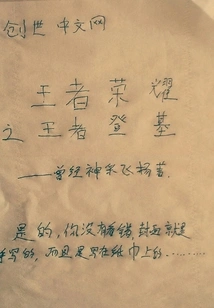 创世 中文网
王者荣耀
之王者登基
——曾经神采飞扬著.
是的,你没有看错,封面就是
手写的,而且是写在纸巾上的………